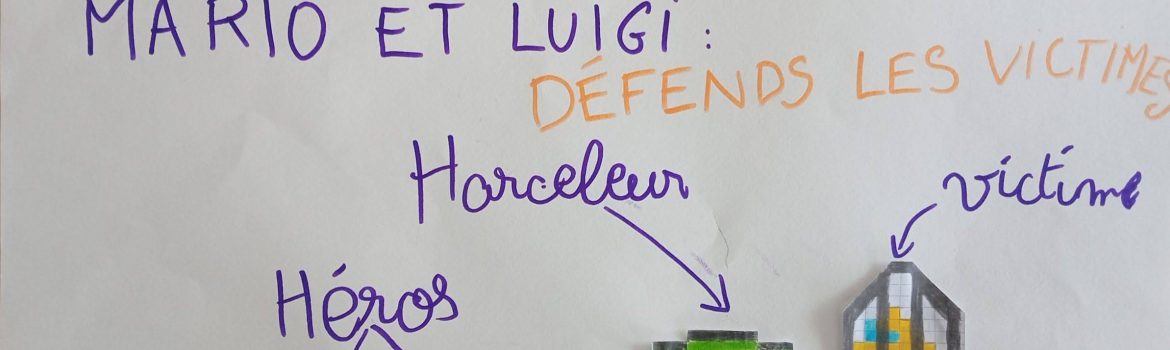 MARIO ET LUIGI :
DÉFENDS LES VICTIMES
Harceleur
victime
Héros